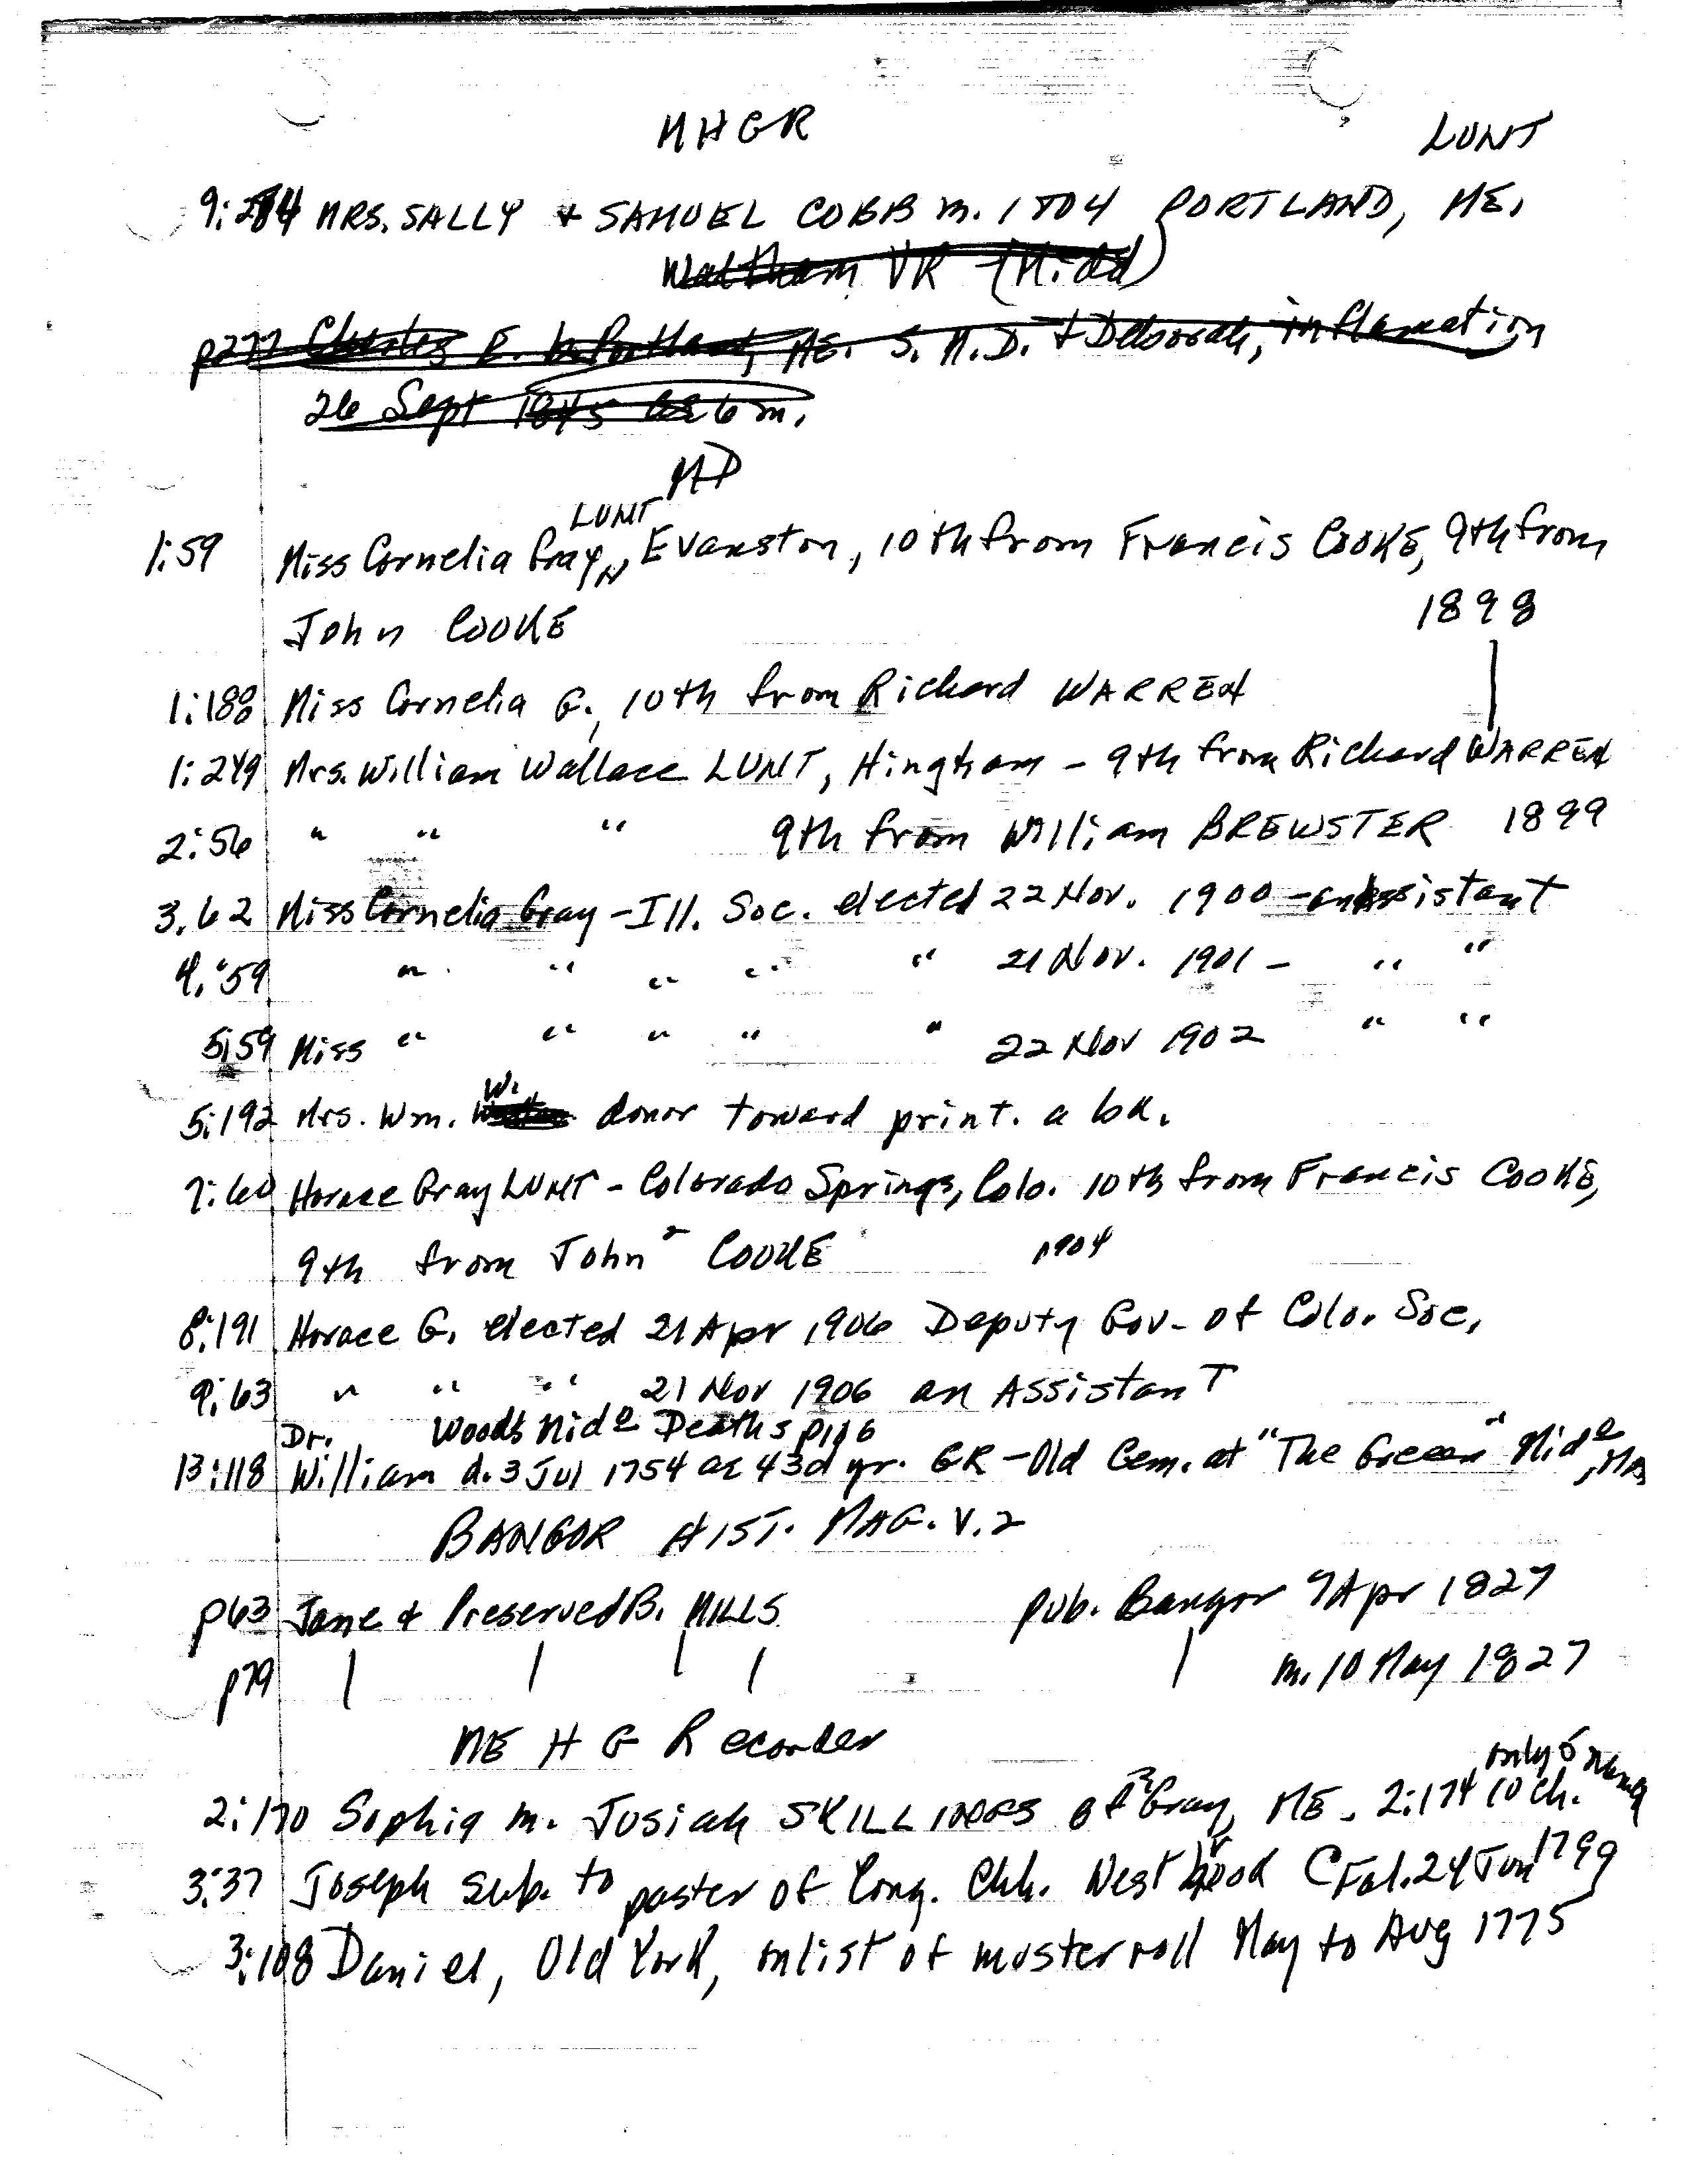 MHGR LUNT
9:284 MRS. SALLY & SAMUEL COBB m. 1804 PORTLAND, ME.
Waltham VR (Midd)
p277 Charles E. b. Portland, ME. S. M.D. & Deborah, inflamation
26 Sept 1845 ae 6 m.
MD
LUNT
1:59 Miss Cornelia Gray, Evanston, 10th from Francis COOKE, 9th from
John COOKE 1898
1:188 Miss Cornelia G., 10th from Richard WARREN |
1:249 Mrs. William Wallace LUNT, Hingham - 9th from Richard WARREN
2:56 " " " 9th from William BREWSTER 1899
3.62 Miss Cornelia Gray - Ill. Soc. elected 22 Nov. 1900 - an Assistant
4:59 " " " " " 21 Nov. 1901 - " "
5:59 Miss " " " " " 22 Nov 1902 " "
W.
5:192 Mrs. Wm. donor toward print. a bk.
7:60 Horace Gray LUNT - Colorado Springs, Colo. 10th from Francis COOKE,
9th from John² COOKE 1904
8:191 Horace G. elected 21 Apr 1906 Deputy Gov. of Colo. Soc.
9:63 " " " 21 Nov 1906 an Assistant
Dr. Woods Midᵉ Deaths p116
13:118 William d. 3 Jul 1754 ae 43d yr. GR - Old Cem. at "The Green" Midᵉ, MA
BANGOR HIST. MAG. V.2
p63 Jane & Preserved B. MILLS pub. Bangor 7 Apr 1827
p79 | | | | | m. 10 May 1827
ME H G Recorder
only 5 name
2:170 Sophia m. Josiah SKILLINGS of Gray, ME. 2:174 10 ch.
3:37 Joseph sub. to paster of Cong. Chh. Westbrook C Fal. 24 Jun 1799
3:108 Daniel, Old York, on list of muster roll May to Aug 1775